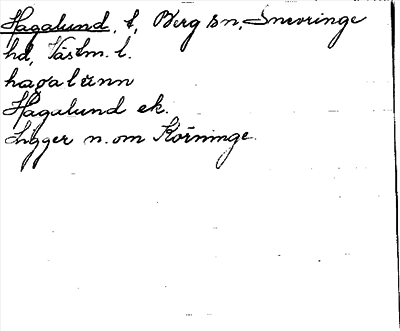 Hagalund, t, Berg sn, Snevringe
hd, Västm. l.
hagalunn
Hagalund ek.
Ligger n. om Körninge.